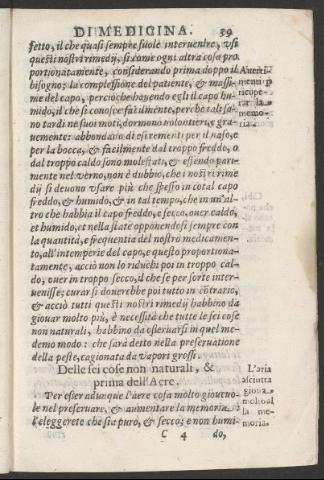 DI MEDICINA. 39
fetto, il che quasi sempre suole interuenire, vsi
questi nostri rimedij, si come ogni altra cosa pro
portionatamente, considerando prima doppo il
bisogno; la complessione del patiente, & massi-
me del capo, percioche hauendo egli il capo hu-
mido, il che si conosce facilmente, perche tale sa-
no tardi ne suoi moti, dormono volontieri, e gra-
uemente: abbondano di escrementi per il naso, e
per la bocca, & facilmente dal troppo freddo, o
dal troppo caldo sono molestati, & essendo pari-
mente nel verno, non è dubbio, che i nostri rime
dij si deuono vsare più che spesso in cotal capo
freddo, & humido, & in tal tempo, che in un'al-
tro chè habbia il capo freddo, e secco, ouer caldo,
et humido, et nella state opponendosi sempre con
la quantità, e frequentia del nostro medicamen-
to, all'intemperie del capo, e questo proportiona-
tamente, acciò non lo riduchi poi in troppo cal-
do, ouer in troppo secco, il che se per sorte inter-
uenisse; curar si douerebbe poi tutto in cōtrario,
& acciò tutti questi nostri rimedij habbino da
giouar molto più, è necessità che tutte le sei cose
non naturali, habbino da osseruarsi in quel me-
demo modo: che sarà detto nella preseruatione
della peste, cagionata da vapori grossi.
Delle sei cose non naturali, &
prima dell'Aere.
Per esser adunque l'aere cosa molto gioueuo-
le nel preseruare, & aumentare la memoria:
l'eleggerete che sia puro, & secco; e non humi-
C 4 do,
Auerti
menti p
ricupe-
rar la
memo-
ria.
L'aria
asciutta
gioua
molto al
la me-
moria.